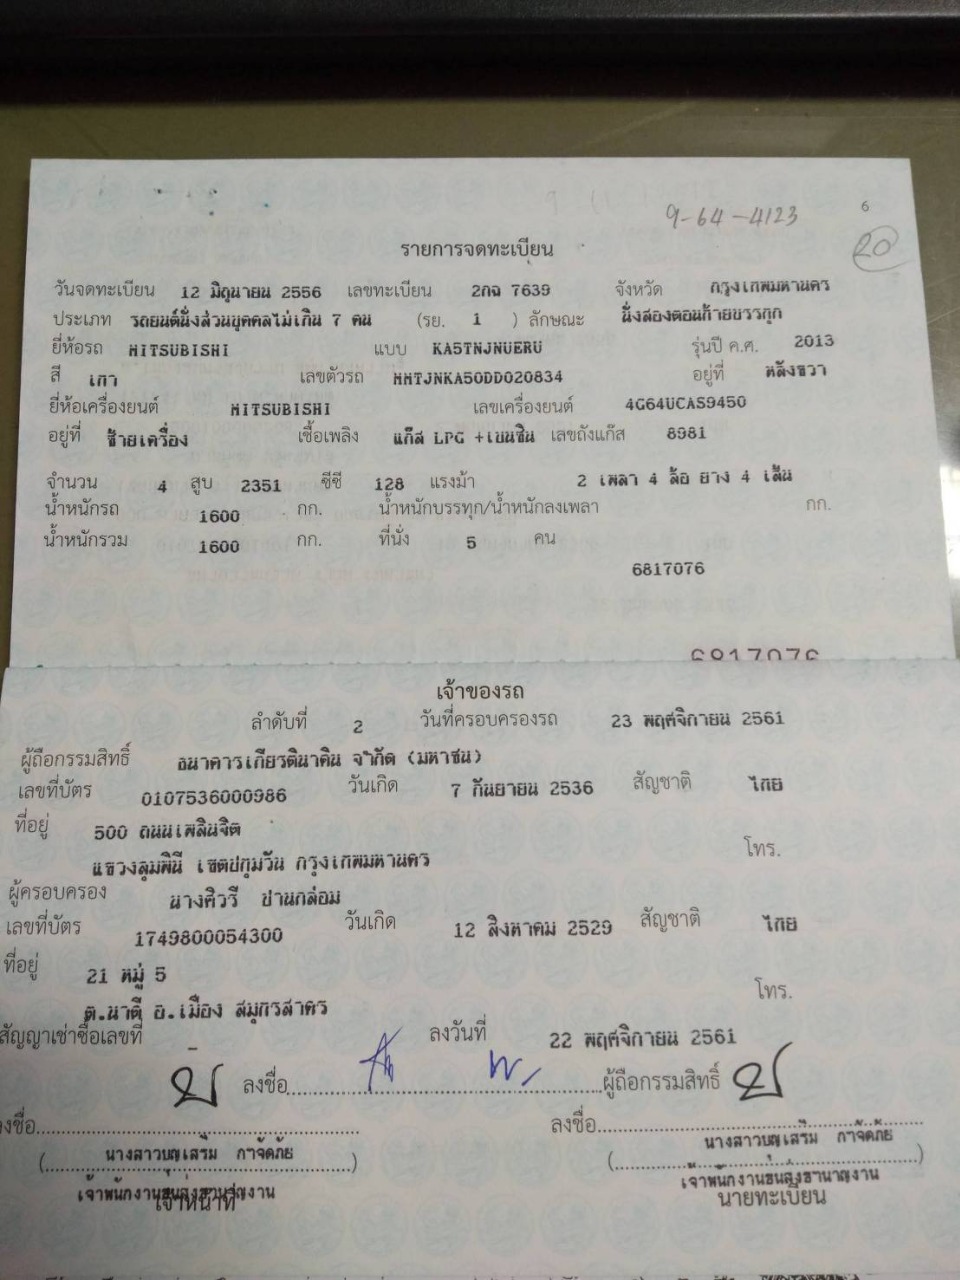 9-64-4123
6
20
รายการจดทะเบียน
วันจดทะเบียน 12 มิถุนายน 2556 เลขทะเบียน 2กฉ 7639 จังหวัด กรุงเทพมหานคร
ประเภท รถยนต์นั่งส่วนบุคคลไม่เกิน 7 คน (รย. 1 ) ลักษณะ นั่งสองตอนท้ายบรรทุก
ยี่ห้อรถ MITSUBISHI แบบ KA5TNJNUERU รุ่นปี ค.ศ. 2013
สี เทา เลขตัวรถ MMTJNKA50DD020834 อยู่ที่ หลังขวา
ยี่ห้อเครื่องยนต์ MITSUBISHI เลขเครื่องยนต์ 4G64UCAS9450
อยู่ที่ ซ้ายเครื่อง เชื้อเพลิง แก๊ส LPG +เบนซิน เลขถังแก๊ส 8981
จำนวน 4 สูบ 2351 ซีซี 128 แรงม้า 2 เพลา 4 ล้อ ยาง 4 เส้น
น้ำหนักรถ 1600 กก. น้ำหนักบรรทุก/น้ำหนักลงเพลา กก.
น้ำหนักรวม 1600 กก. ที่นั่ง 5 คน
6817076
6817076
เจ้าของรถ
ลำดับที่ 2 วันที่ครอบครองรถ 23 พฤศจิกายน 2561
ผู้ถือกรรมสิทธิ์ ธนาคารเกียรตินาคิน จำกัด (มหาชน)
เลขที่บัตร 0107536000986 วันเกิด 7 กันยายน 2536 สัญชาติ ไทย
ที่อยู่ 500 ถนนเพลินจิต
แขวงลุมพินี เขตปทุมวัน กรุงเทพมหานคร โทร.
ผู้ครอบครอง นางศิวรี ปานกล่อม
เลขที่บัตร 1749800054300 วันเกิด 12 สิงหาคม 2529 สัญชาติ ไทย
ที่อยู่ 21 หมู่ 5
ต.นาดี อ.เมือง สมุทรสาคร โทร.
สัญญาเช่าซื้อเลขที่ - ลงวันที่ 22 พฤศจิกายน 2561
ลงชื่อ ผู้ถือกรรมสิทธิ์
ลงชื่อ ลงชื่อ
(นางสาวบุญเสริม กาจัดภัย) (นางสาวบุญเสริม กาจัดภัย)
เจ้าพนักงานขนส่งชำนาญงาน เจ้าพนักงานขนส่งชำนาญงาน
เจ้าหน้าที่ นายทะเบียน